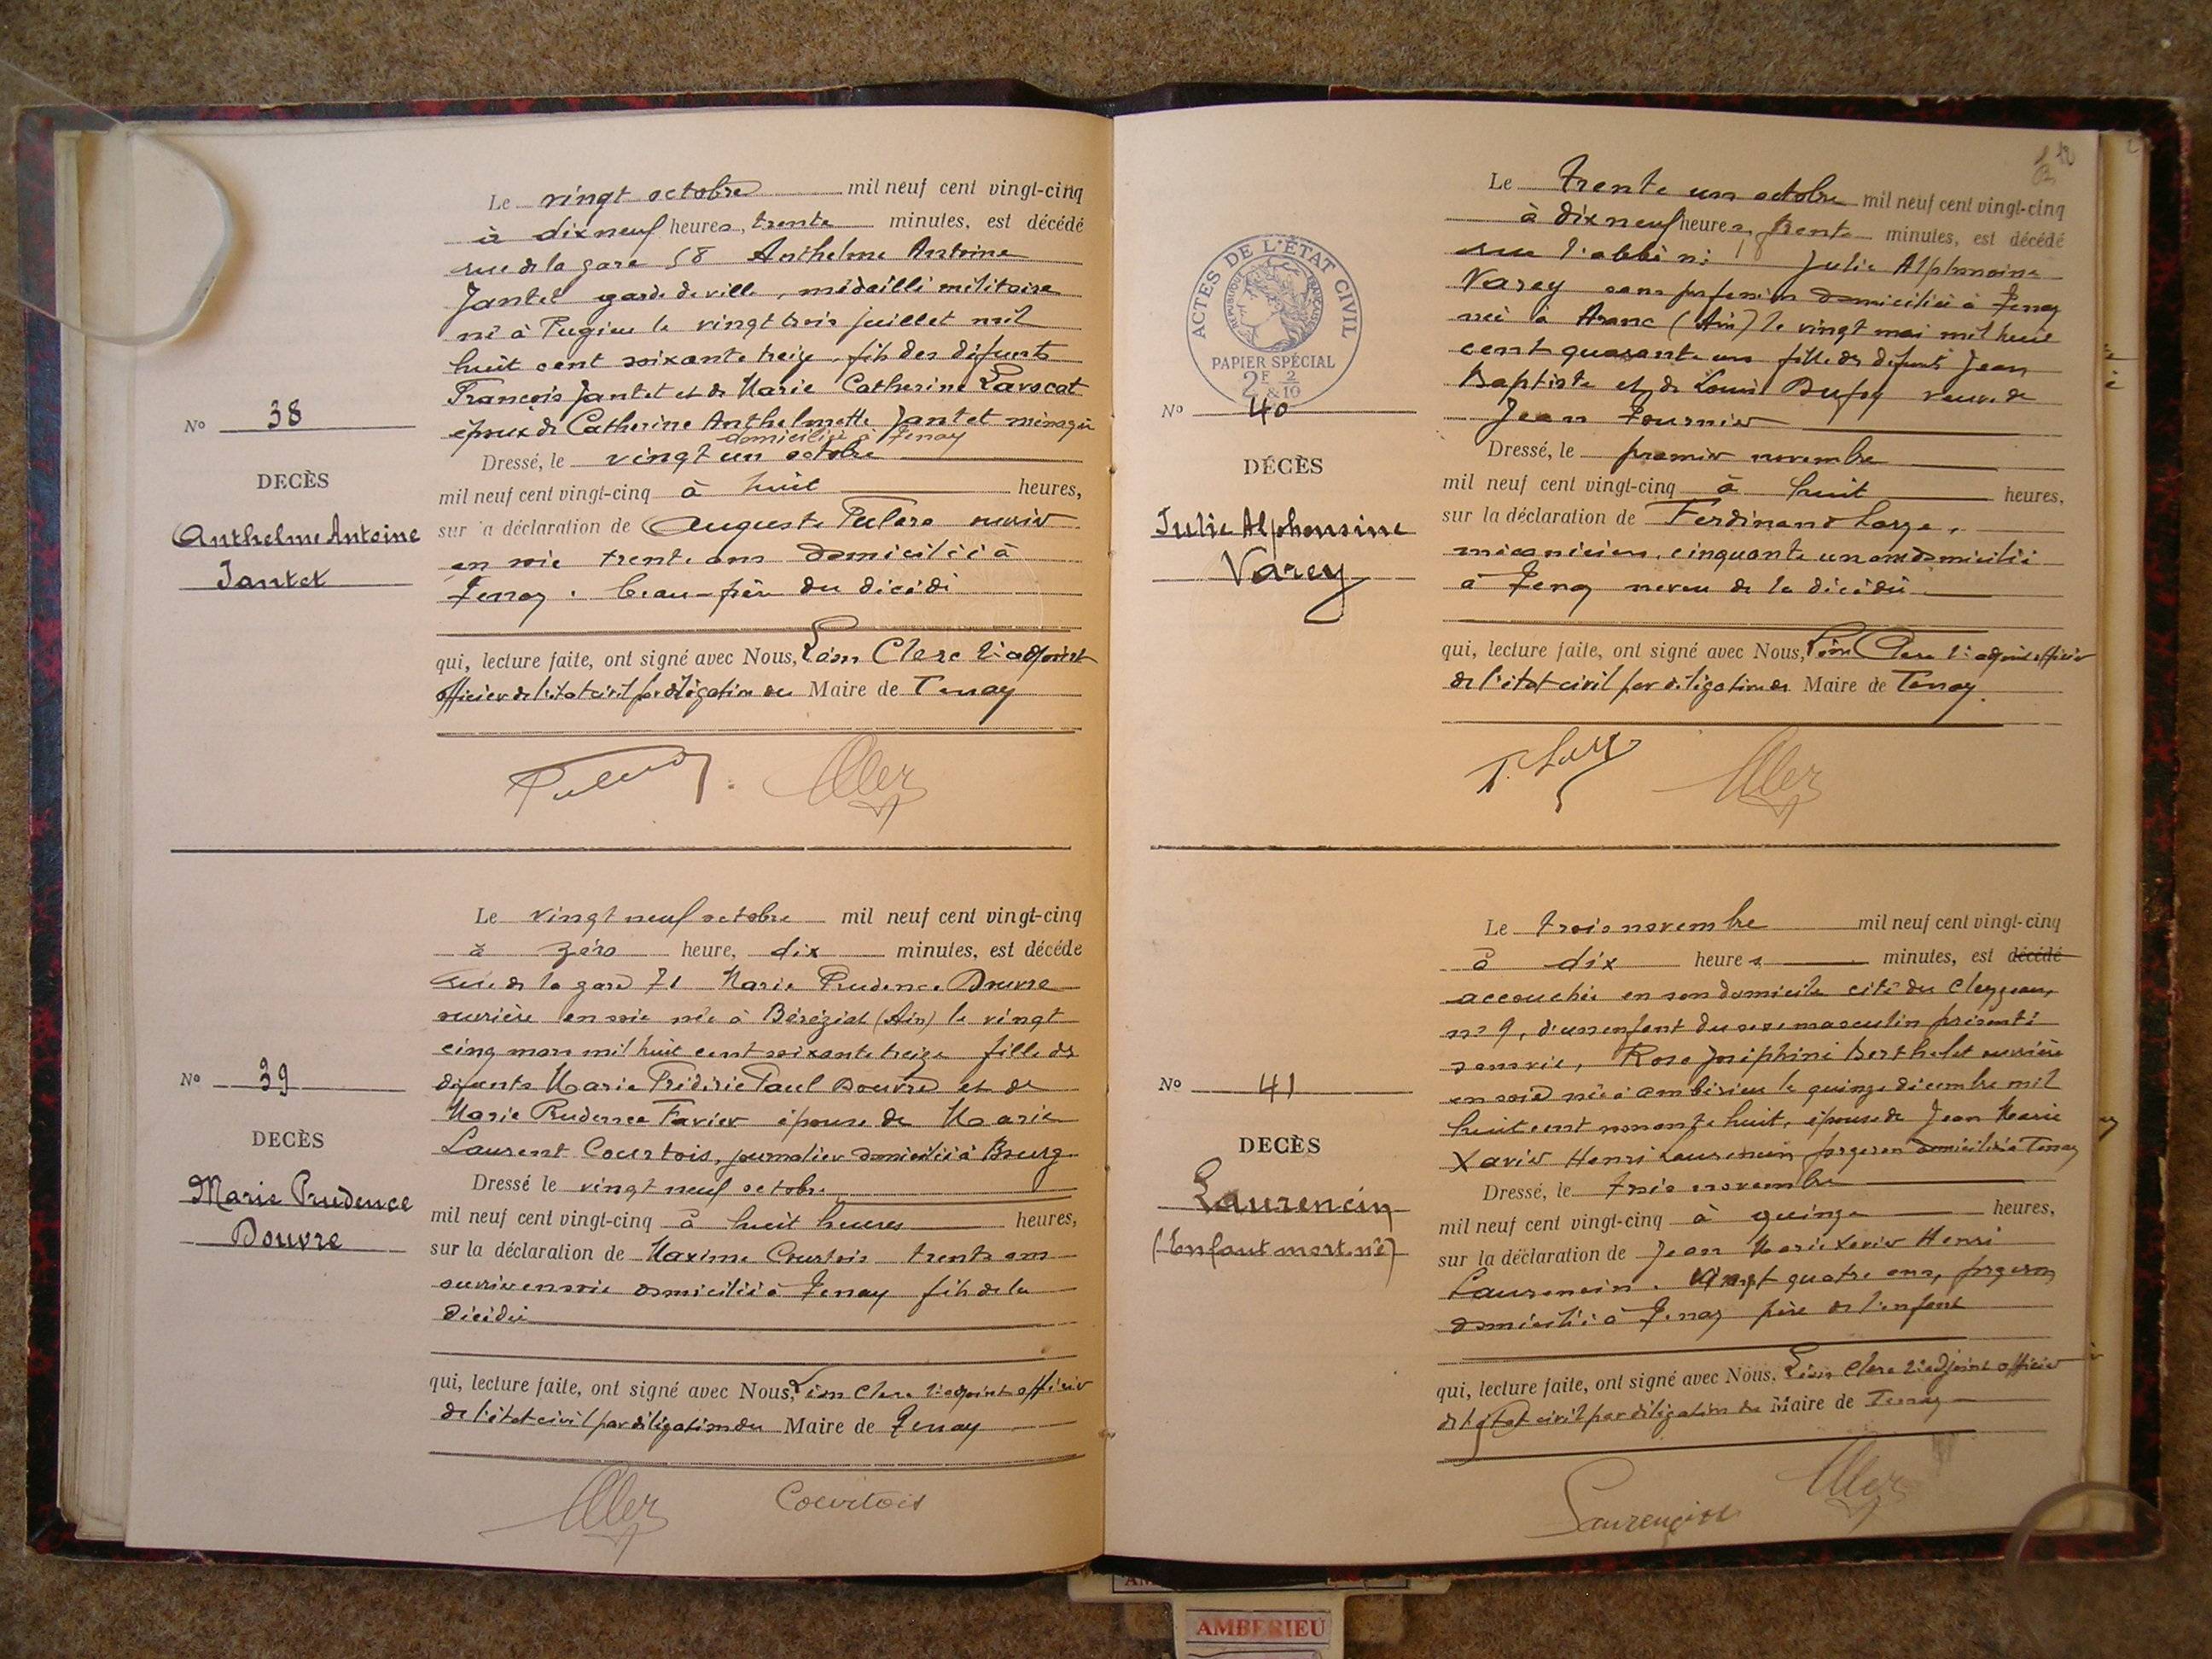 Le vingt octobre mil neuf cent vingt-cinq
à dix neuf heures, trente minutes, est décédé
rue de la gare 58 Anthelme Antoine
Jantet garde de ville, médaillé militaire
né à Pugieu le vingt trois juillet mil
huit cent soixante treize, fils des défunts
François Jantet et de Marie Catherine Lavocat
époux de Catherine Anthelmette Jantet ménagère
domiciliée à Tenay
No 38
DECÈS
Anthelme Antoine
Jantet
Dressé, le vingt un octobre
mil neuf cent vingt-cinq à huit heures,
sur la déclaration de Auguste ouvrier
en soie trente ans domicilié à
Tenay. beau-frère du décédé
qui, lecture faite, ont signé avec Nous, Léon Clerc 2e adjoint
officier de l'état civil par délégation du Maire de Tenay
Le vingt neuf octobre mil neuf cent vingt-cinq
à zéro heure, dix minutes, est décédé
rue de la gare 71 Marie Prudence Douvre
ouvrière en soie née à Béréziat (Ain) le vingt
cinq mars mil huit cent soixante treize fille de
défunts Marie Frédéric Paul Douvre et de
Marie Prudence Favier épouse de Marie
Laurent Courtois, journalier domicilié à Bourg
No 39
DECÈS
Marie Prudence
Douvre
Dressé le vingt neuf octobre
mil neuf cent vingt-cinq à huit heures heures,
sur la déclaration de Maxime Courtois trente ans
ouvrier en soie domicilié à Tenay fils de la
décédée
qui, lecture faite, ont signé avec Nous, Léon Clerc 2e adjoint officier
de l'état civil par délégation du Maire de Tenay
Courtois
12
Le trente un octobre mil neuf cent vingt-cinq
à dix neuf heures, trente minutes, est décédé
rue l'abbé Julie Alphonsine
Varey sans profession domiciliée à Tenay
née à Aranc (Ain) le vingt mai mil huit
cent quarante un fille de défunts Jean
Baptiste et de Louise Dufey veuve de
Jean Fournier
ACTES DE L'ÉTAT CIVIL
RÉPUBLIQUE FRANÇAISE
PAPIER SPÉCIAL
2F & 2/10
No 40
DÉCÈS
Julie Alphonsine
Varey
Dressé, le premier novembre
mil neuf cent vingt-cinq à huit heures,
sur la déclaration de Ferdinand
mécanicien, cinquante un ans domicilié
à Tenay neveu de la décédée
qui, lecture faite, ont signé avec Nous, Léon Clerc 2e adjoint officier
de l'état civil par délégation du Maire de Tenay.
Le trois novembre mil neuf cent vingt-cinq
à dix heures minutes, est décédé
accouchée en son domicile cité du
n° 9, d'un enfant du sexe masculin présenté
sans vie, Rose Joséphine Berthelet ouvrière
en soie née à Ambérieu le quinze décembre mil
huit cent nonante huit, épouse de Jean Marie
Xavier Henri Laurencin forgeron domicilié à Tenay
No 41
DECÈS
Laurencin
(Enfant mort né)
Dressé, le trois novembre
mil neuf cent vingt-cinq à quinze heures,
sur la déclaration de Jean Marie Xavier Henri
Laurencin. vingt quatre ans, forgeron
domicilié à Tenay père de l'enfant
qui, lecture faite, ont signé avec Nous, Léon Clerc 2e adjoint officier
de l'état civil par délégation du Maire de Tenay
Laurencin
AMBERIEU